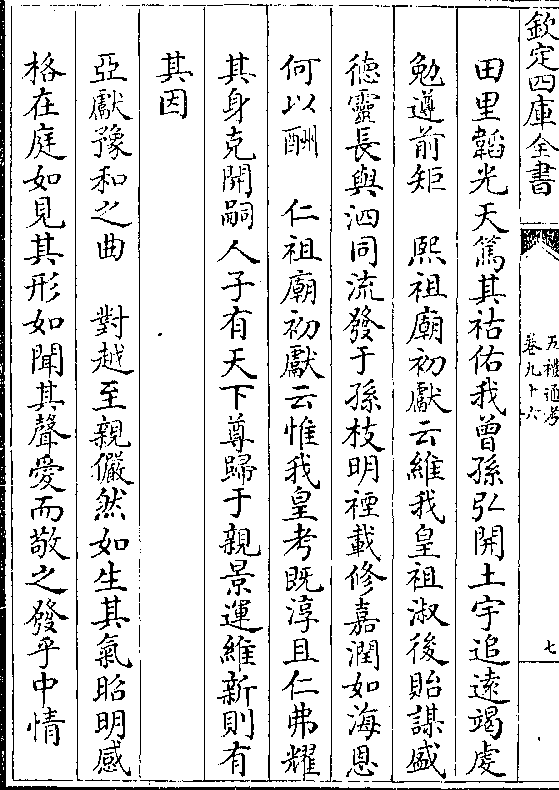 欽定四庫全書
五禮通考
卷九十六
七
田里韜光天篤其祜佑我曾孫弘開土宇追遠竭虔
勉遵前矩　熙祖廟初獻云維我皇祖淑後貽謀盛
徳靈長與泗同流發于孫枝明禋載修嘉潤如海恩
何以酬　仁祖廟初獻云惟我皇考既淳且仁弗耀
其身克開嗣人子有天下尊歸于親景運維新則有
其因
亞獻豫和之曲　對越至親儼然如生其氣昭明感
格在庭如見其形如聞其聲愛而敬之發乎中情